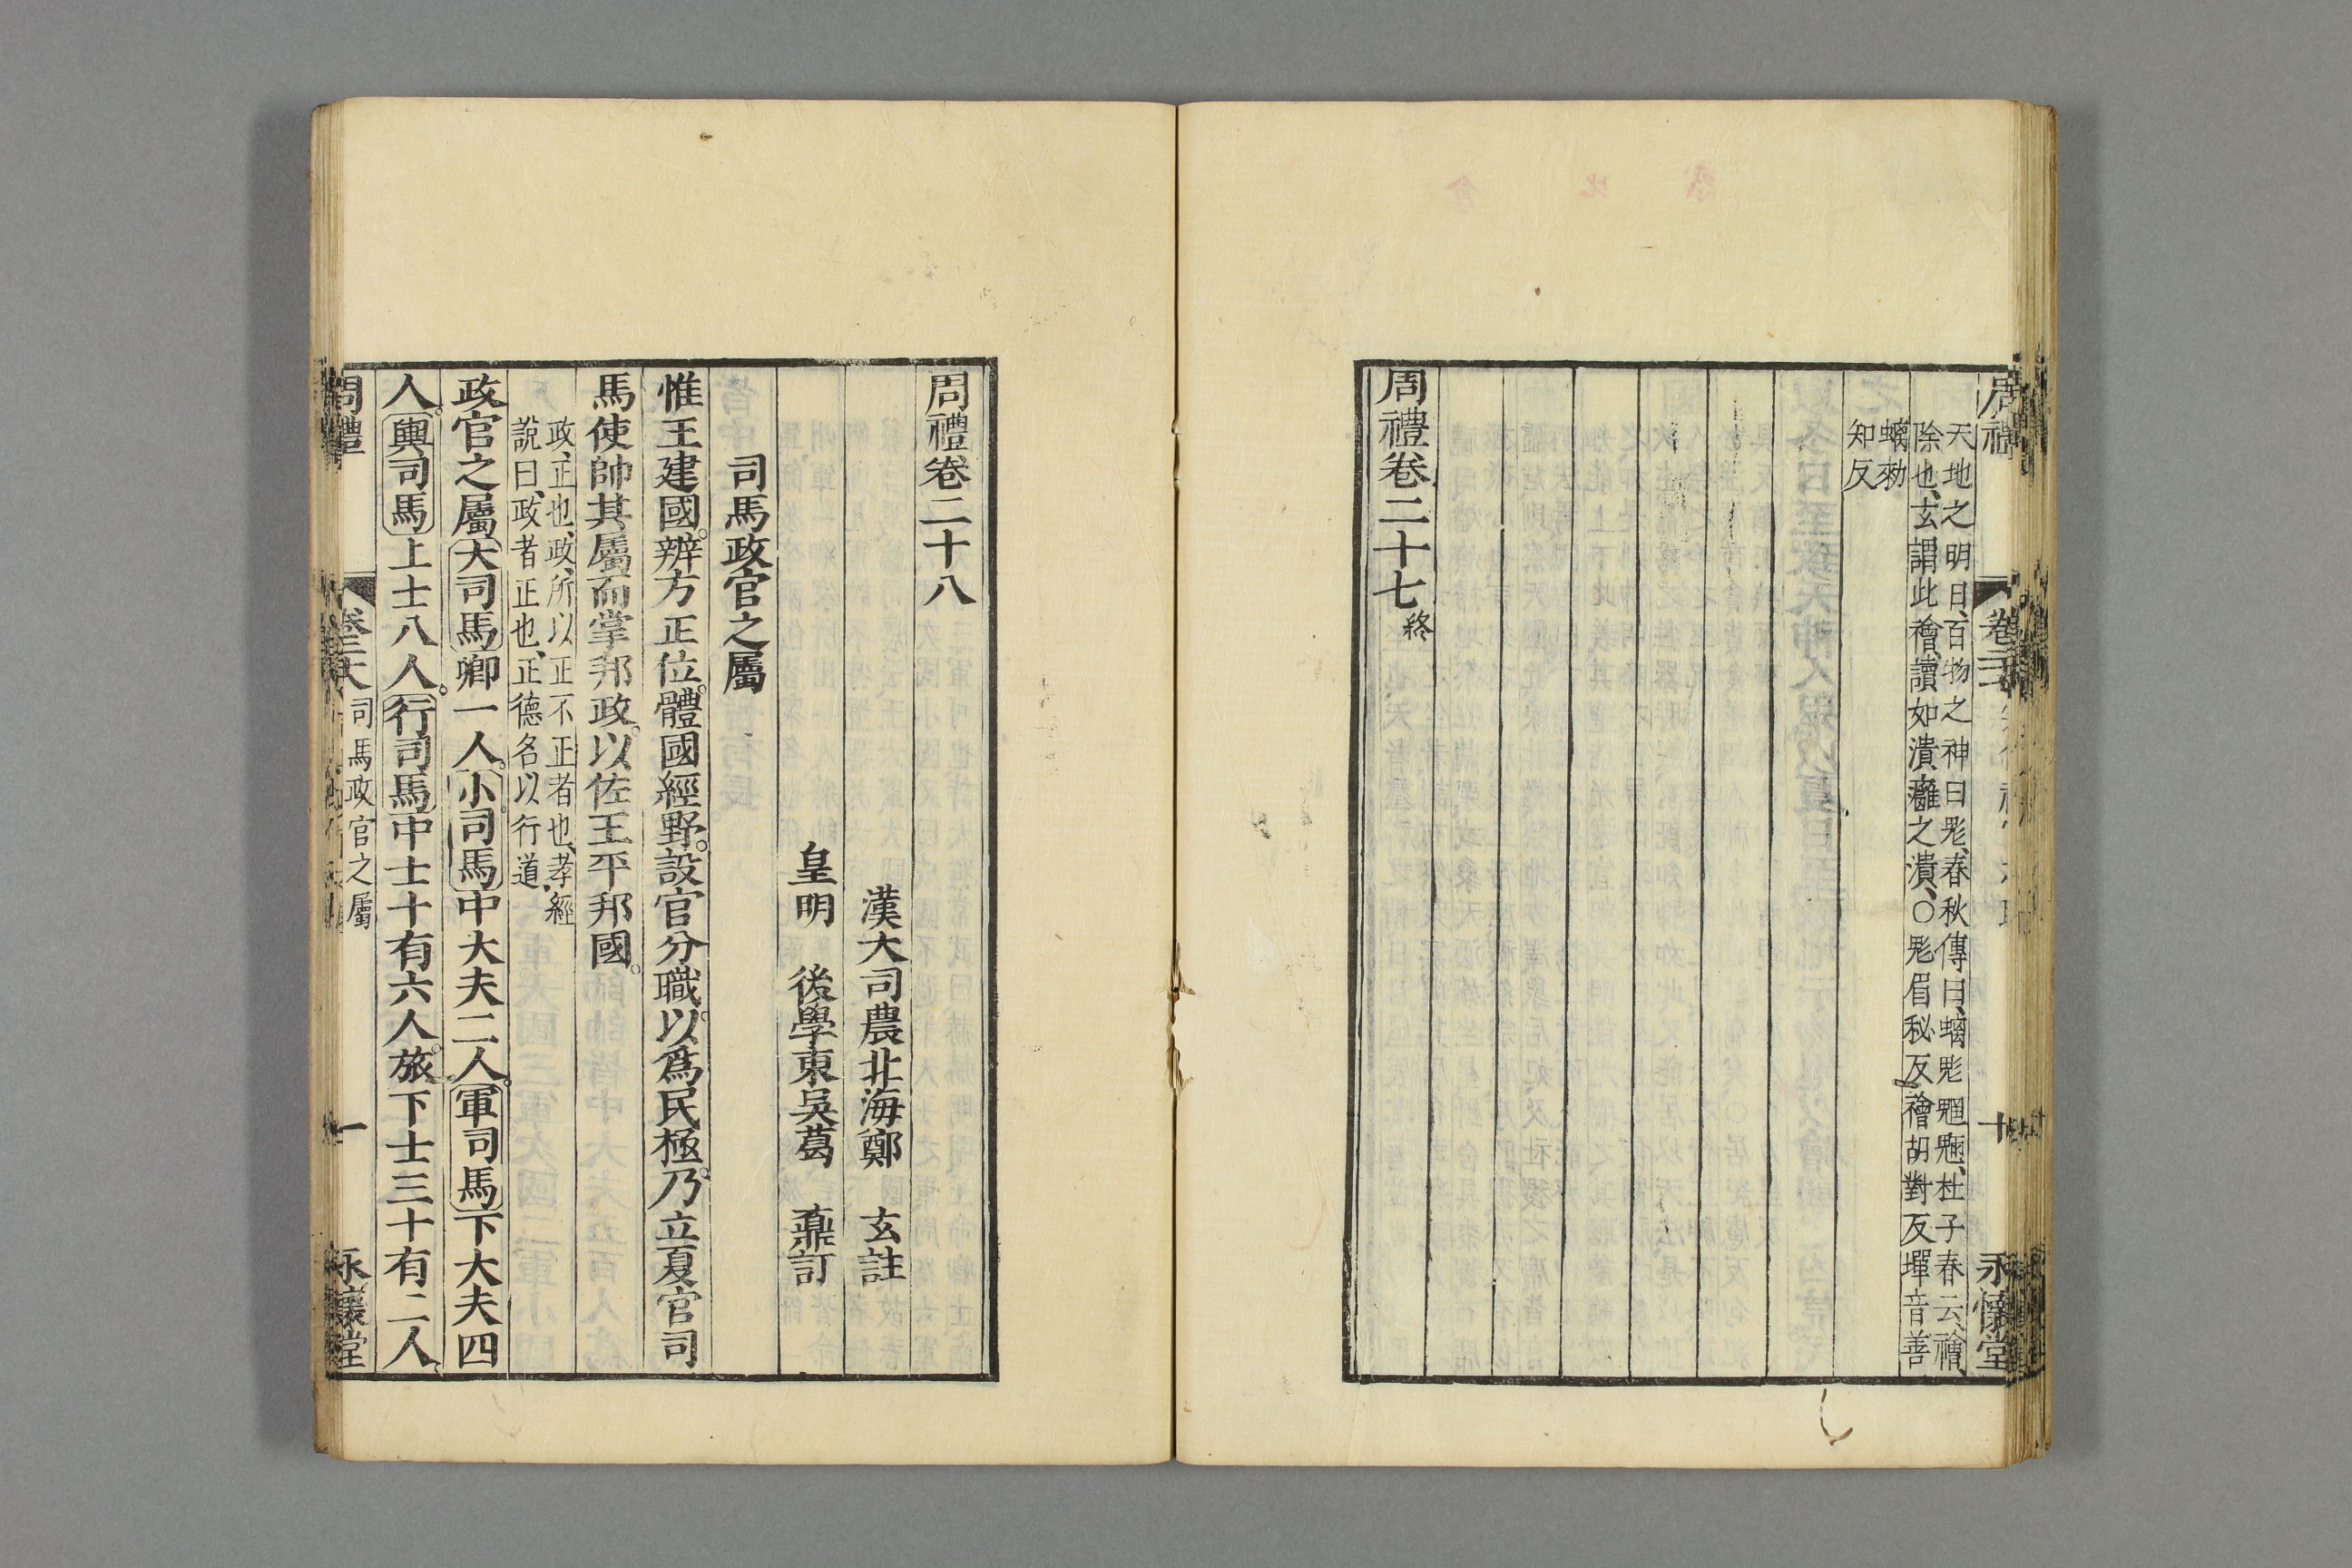 周禮 卷二十七 十 永懷堂
天地之明日、百物之神曰鬽、春秋傳曰、螭鬽魍魎、杜子春云、禬、
除也、玄謂此禬、讀如潰癰之潰、○鬽眉秘反禬胡對反墠音善
螭勑
知反
周禮卷二十七終
周禮卷二十八
漢大司農北海鄭 玄註
皇明 後學東吳葛 鼒訂
司馬政官之屬
惟王建國。辨方正位。體國經野。設官分職。以爲民極。乃立夏官司
馬使帥其屬而掌邦政。以佐王平邦國。
政、正也、政、所以正不正者也、孝經
說曰、政者正也、正德名以行道、
政官之屬大司馬卿一人。小司馬中大夫二人。軍司馬下大夫四
人。輿司馬上士八人。行司馬中士十有六人。旅下士三十有二人、
周禮 卷二十八 司馬政官之屬 一 永懷堂